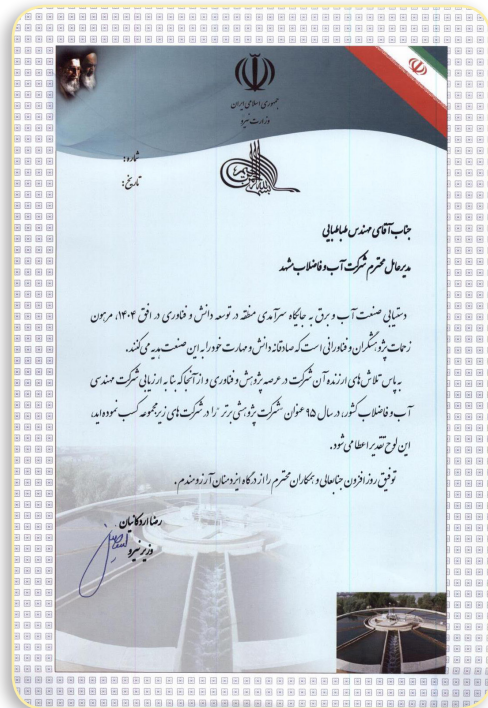 جمهوری اسلامی ایران
وزارت نیرو
شماره:
تاریخ:
جناب آقای مهندس طباطبایی
مدیرعامل محترم شرکت آب و فاضلاب مشهد
دستیابی صنعت آب و برق به جایگاه سرآمدی منطقه در توسعه دانش و فناوری در افق ۱۴۰۴، مرهون
زحمات پژوهشگران و فناورانی است که صادقانه دانش و مهارت خود را به این صنعت هدیه می کنند.
به پاس تلاش های ارزنده آن شرکت در عرصه پژوهش و فناوری و از آنجا که بنا به ارزیابی شرکت مهندسی
آب و فاضلاب کشور، در سال ۹۵ عنوان شرکت پژوهشی برتر را در شرکت های زیرمجموعه کسب نموده اید،
این لوح تقدیر اعطا می شود.
توفیق روز افزون جنابعالی و همکاران محترم را از درگاه ایزد منان آرزومندم.
رضا اردکانیان
وزیر نیرو